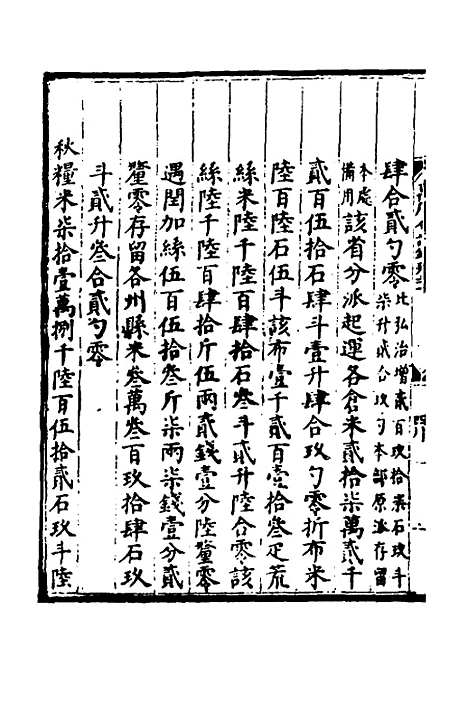 肆合貳勺零比弘治增貳百玖拾柒石玖斗柒升貳合玖勺本部原派存留
本處備用該省分派起運各倉米貳拾柒萬貳千
貳百伍拾石肆斗壹升肆合玖勺零折布米
陸百陸石伍斗該布壹千貳百壹拾叄疋荒
絲米千陸百肆拾石叄斗貳升陸合零該
絲陸千陸百肆拾斤伍兩貳錢壹分陸釐零
遇閏加絲伍百伍拾叄斤柒兩柒錢壹分貳
釐零存留各州縣米叄萬叄百玖拾肆石玖
斗貳升叄合貳勺零
秋糧米柒拾壹萬捌千陸百伍拾貳石玖斗陸